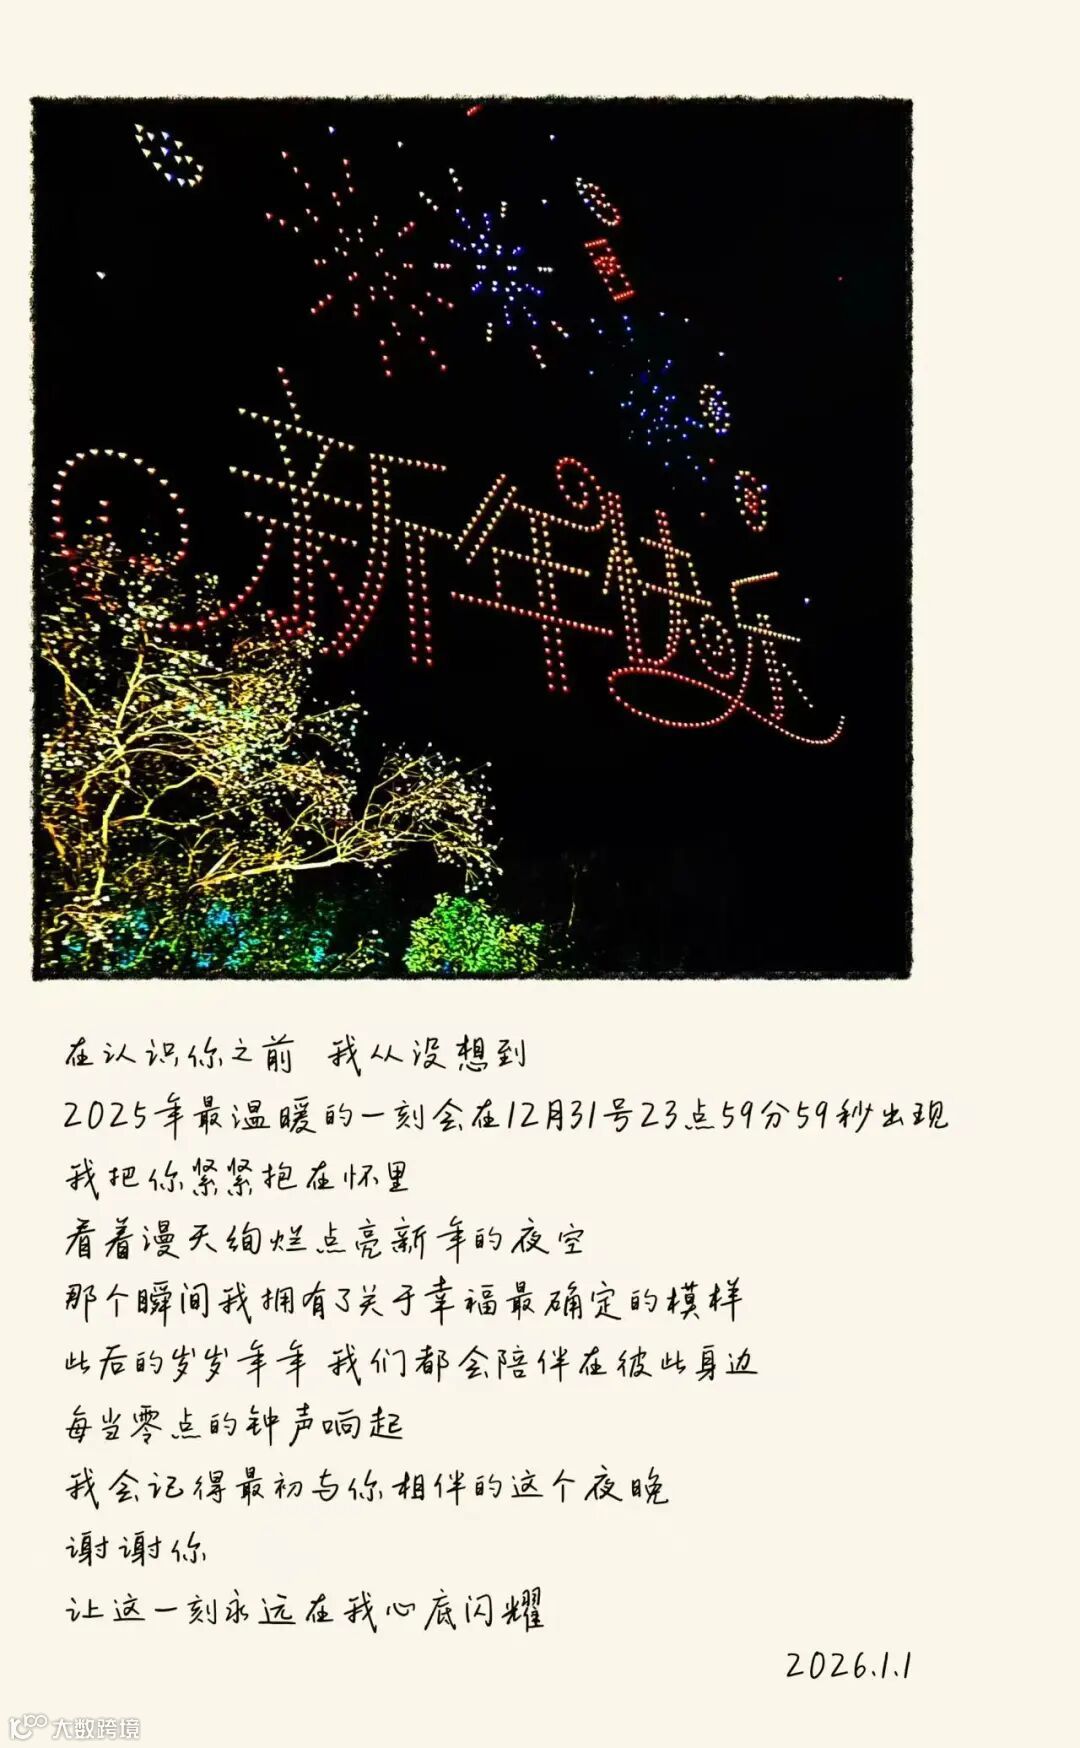 新年快乐
在认识你之前 我从没想到
2025年最温暖的一刻会在12月31号23点59分59秒出现
我把你紧紧抱在怀里
看着漫天绚烂点亮新年的夜空
那个瞬间我拥有了关于幸福最确定的模样
此后的岁岁年年 我们都会陪伴在彼此身边
每当零点的钟声响起
我会记得最初与你相伴的这个夜晚
谢谢你
让这一刻永远在我心底闪耀
2026.1.1
大数跨境